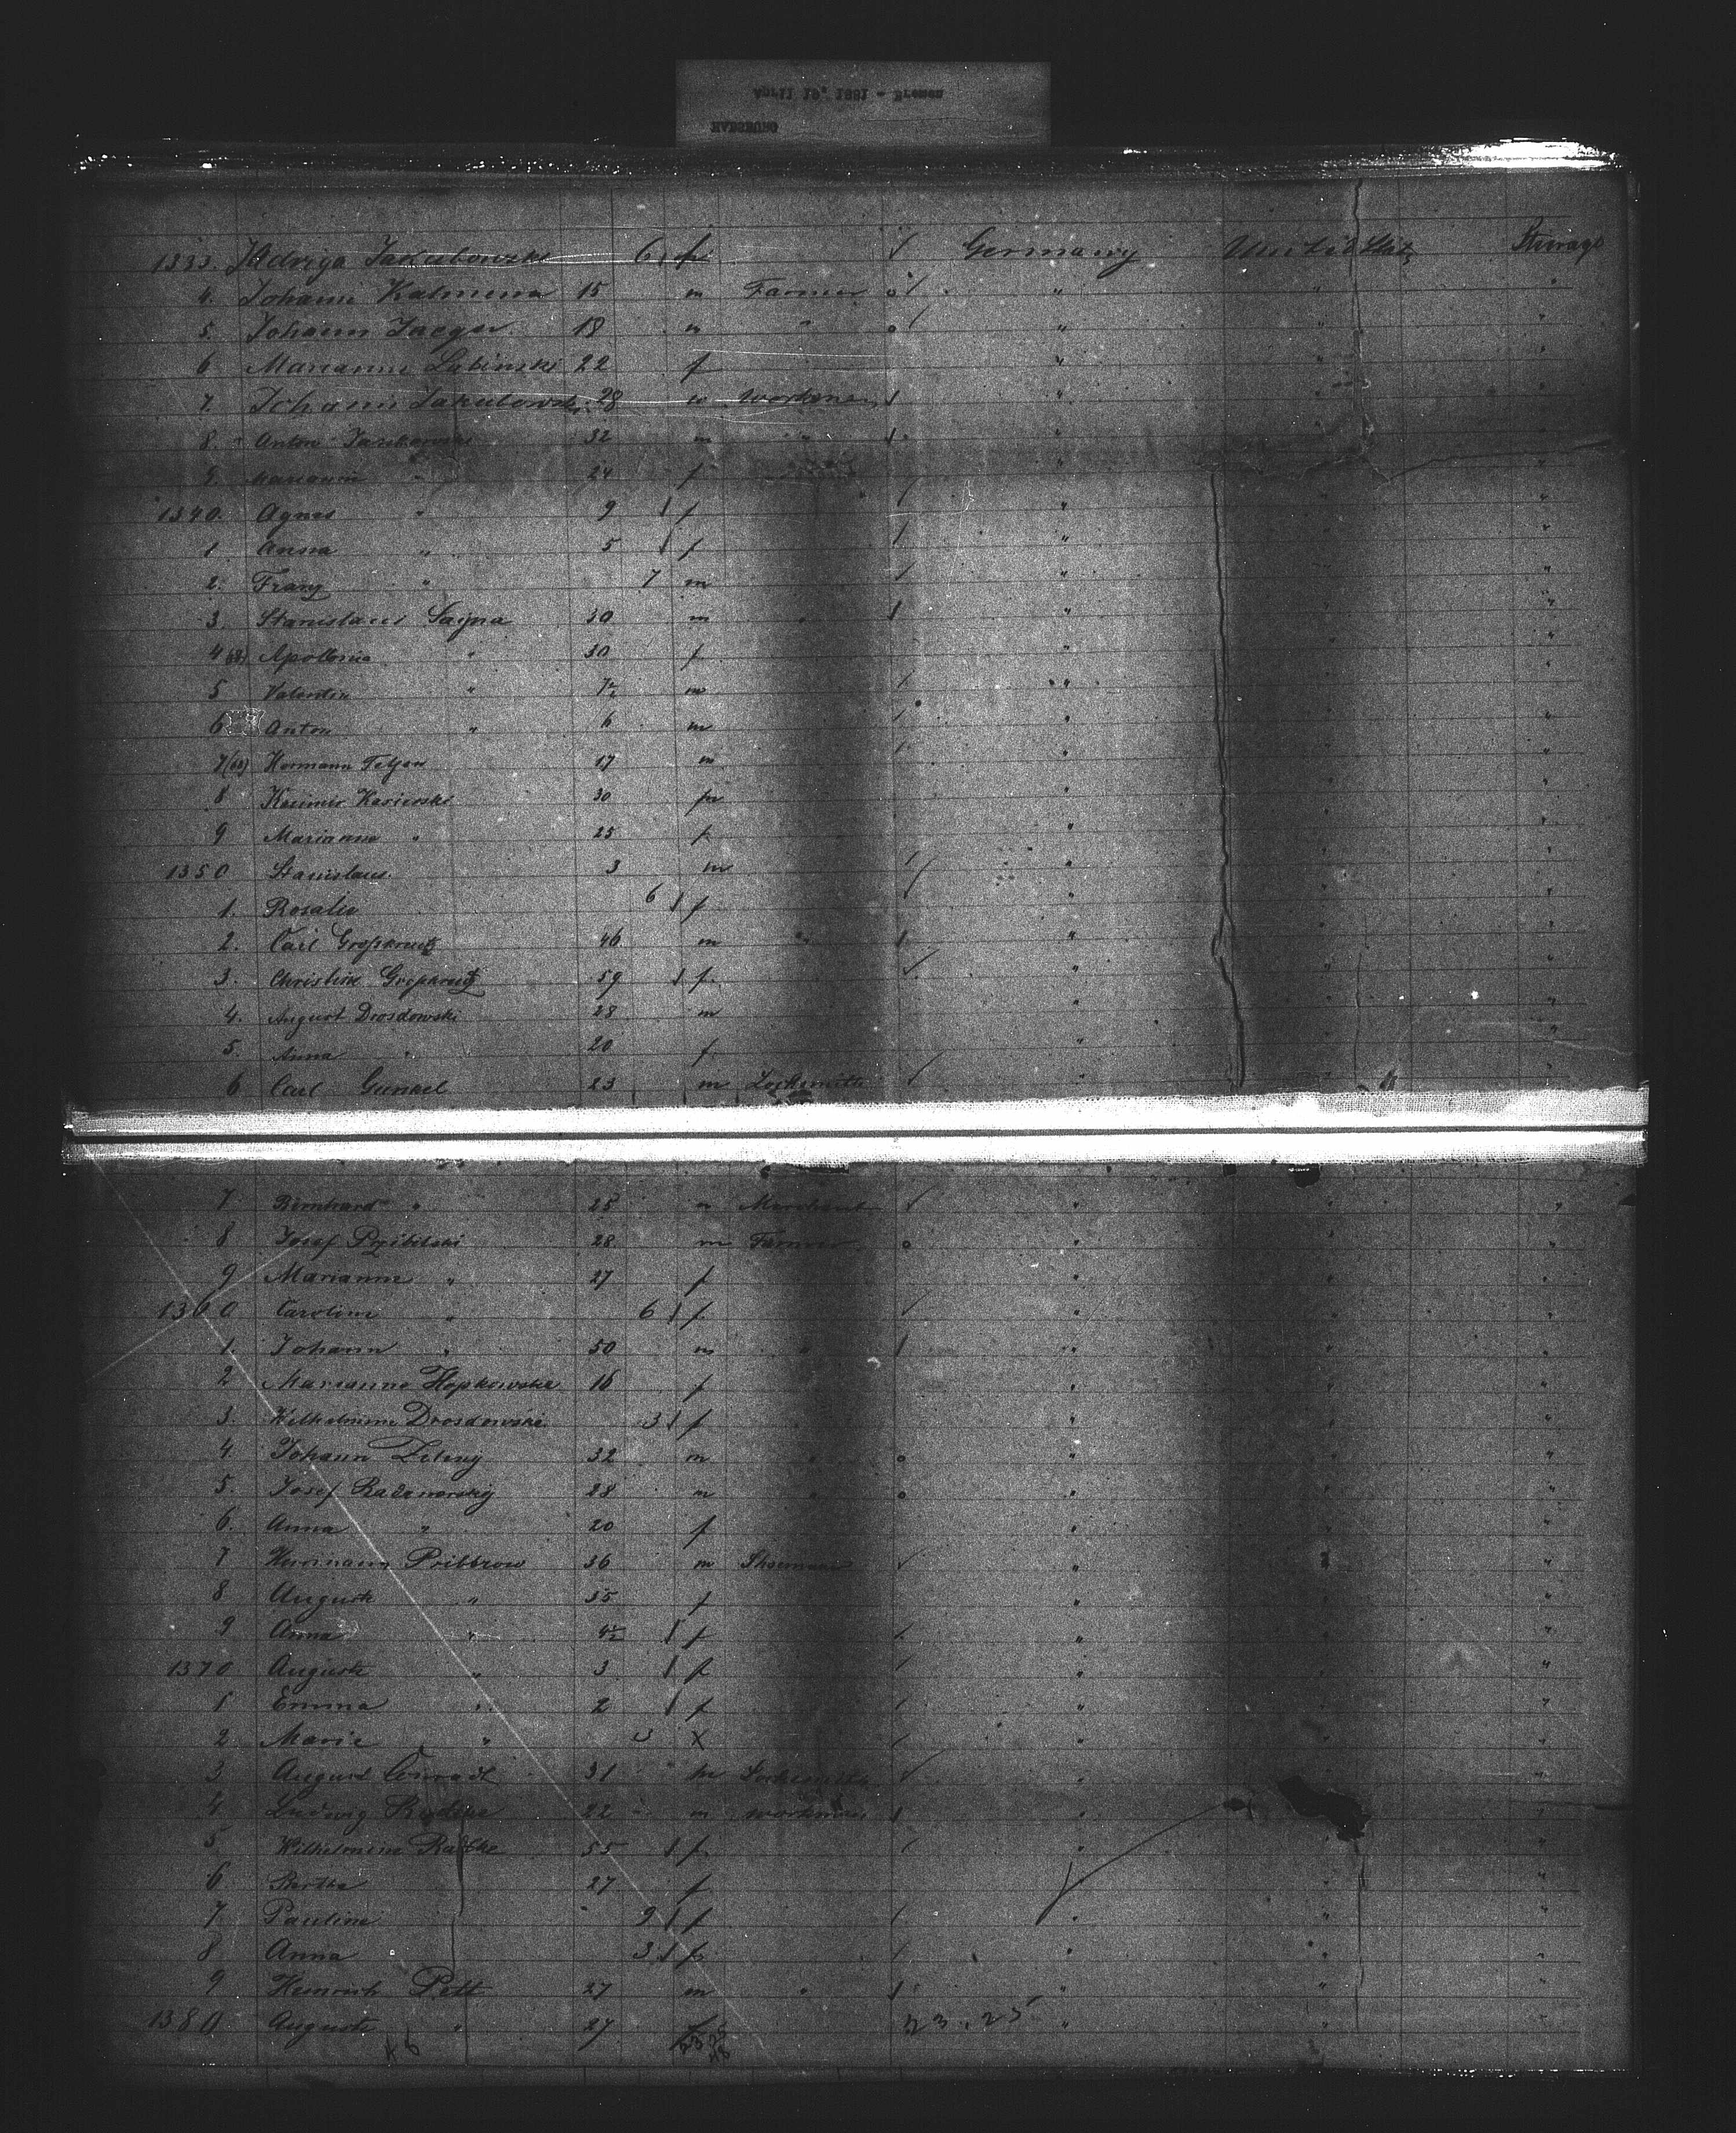 April 19, 1881 - Bremen
HAPSBURG
1333. Hadviga Jakubowski 6 f Germany United States Steerage
4. Johann Kalmena 15 m Farmer " " "
5. Johann Jaeger 18 m " " " "
6 Marianne Lubinski 22 f " " "
7. Johann Jakubowski 28 m workman " " "
8. Anton 32 m " " " "
9. Marianne " 24 f " " "
1340. Agnes " 9 f " " "
1 Anna " 5 f " " "
2. Franz " 7 m " " "
3. Stanislaus Sajna 30 m " " " "
4 Apollonia " 30 f " " "
5 Valentin " 7½ m " " "
6 Anton " 6 m " " "
7 Hermann 17 m " " "
8 Kasimir 30 m " " "
9 Marianne " 25 f " " "
1350 Stanislaus 3 m " " "
1. Rosalie 6 f " " "
2. Carl Grosskreutz 46 m " " " "
3. Christine Grosskreutz 59 f " " "
4. August Drosdowski 28 m " " "
5. Anna " 20 f " " "
6 Carl Gunkel 23 m Locksmith " " "
7 Bernhard " 25 m Merchant " " "
8 Josef Przibilski 28 m Farmer " " "
9 Marianne " 27 f " " "
1360 Caroline " 6 f " " "
1. Johann " 50 m " " " "
2 Marianne 16 f " " "
3. Wilhelmine Drosdowski 3 f " " "
4. Johann 32 m " " " "
5. Josef 28 m " " " "
6. Anna " 20 f " " "
7 Hermann Pribbrow 36 m Shoemaker " " "
8 Auguste " 35 f " " "
9 Anna " 4½ f " " "
1370 Auguste " 3 f " " "
1 Emma " 2 f " " "
2 Marie " 3 X " " "
3 August Conradt 31 m Locksmith " " "
4 Ludwig 22 m workman " " "
5 Wilhelmine Radtke 55 f " " "
6 Bertha 27 f " " "
7 Pauline 9 f " " "
8 Anna 3 f " " "
9 Heinrich Pett 27 m " " " "
1380 Auguste " 27 f 23.25 " " "